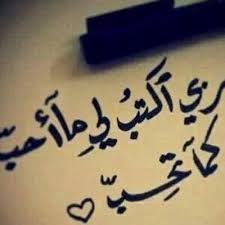 ربي أكتبُ لي مآ أحبّ
كمآ تحِبّ ♡